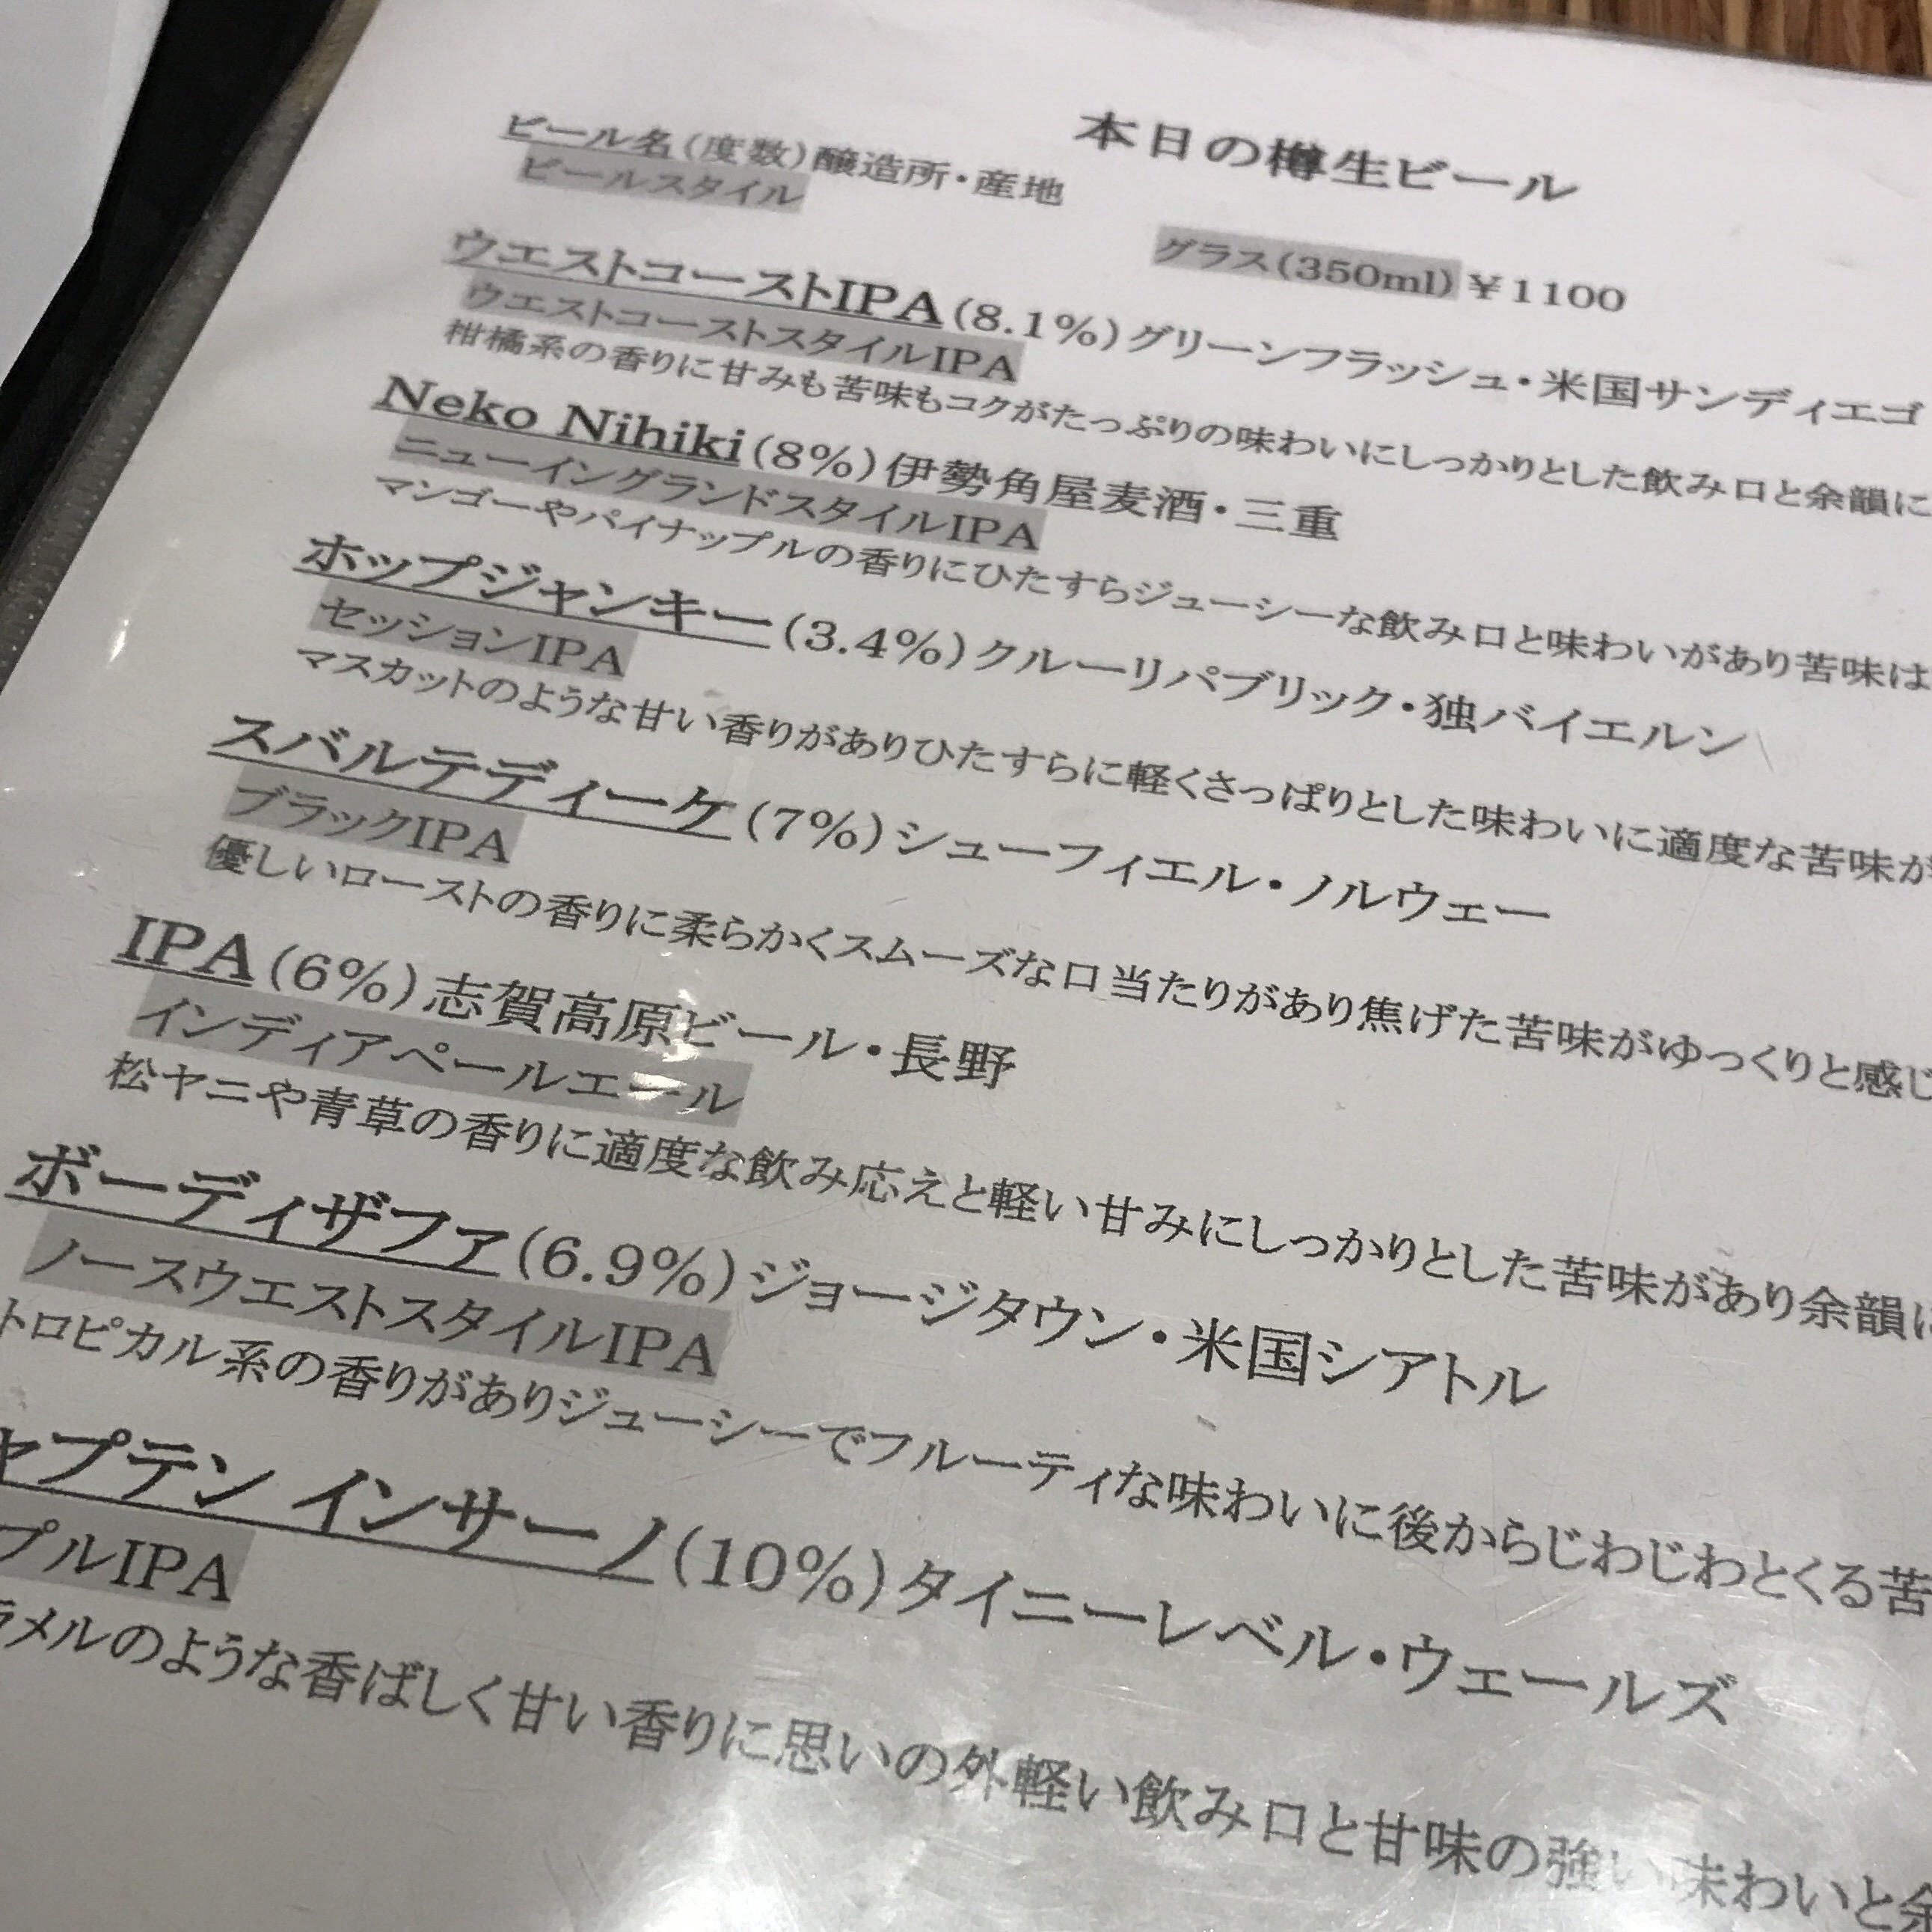 本日の樽生ビール
ビール名(度数)醸造所・産地
ビールスタイル
グラス(350ml)¥1100
ウエストコーストIPA(8.1%)グリーンフラッシュ・米国サンディエゴ
ウエストコーストスタイルIPA
柑橘系の香りに甘みも苦味もコクがたっぷりの味わいにしっかりとした飲み口と余韻に
Neko Nihiki(8%)伊勢角屋麦酒・三重
ニューイングランドスタイルIPA
マンゴーやパイナップルの香りにひたすらジューシーな飲み口と味わいがあり苦味は
ホップジャンキー(3.4%)クルーリパブリック・独バイエルン
セッションIPA
マスカットのような甘い香りがありひたすらに軽くさっぱりとした味わいに適度な苦味が
スバルテディーケ(7%)シューフィエル・ノルウェー
ブラックIPA
優しいローストの香りに柔らかくスムーズな口当たりがあり焦げた苦味がゆっくりと感じ
IPA(6%)志賀高原ビール・長野
インディアペールエール
松ヤニや青草の香りに適度な飲み応えと軽い甘みにしっかりとした苦味があり余韻に
ボーディザファ(6.9%)ジョージタウン・米国シアトル
ノースウエストスタイルIPA
トロピカル系の香りがありジューシーでフルーティな味わいに後からじわじわとくる苦
ャプテン インサーノ(10%)タイニーレベル・ウェールズ
プルIPA
ラメルのような香ばしく甘い香りに思いの外軽い飲み口と甘味の強い味わいと余